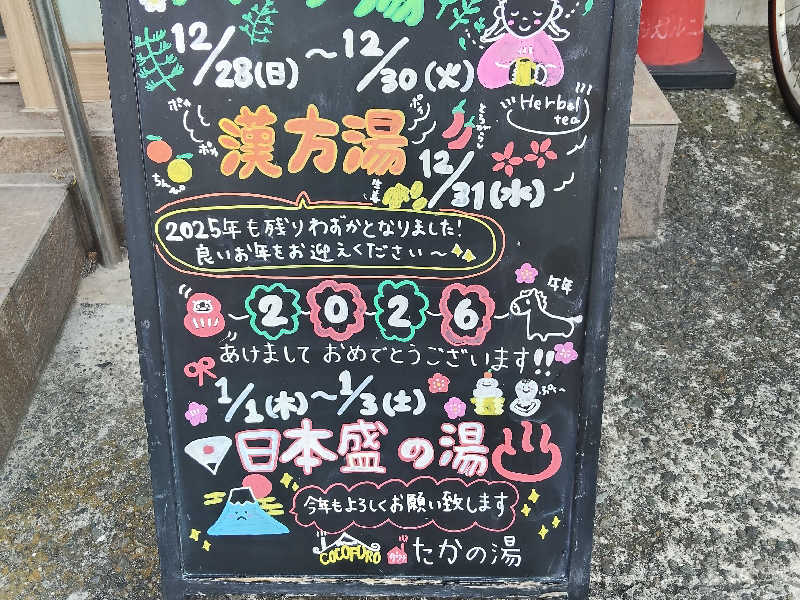 湯
12/28(日)～12/30(火)
Herbal
tea
漢方湯
ポカ
ポカ
ポカ
とうがらし
生姜
ちんぴ
12/31(水)
2025年も残りわずかとなりました!
良いお年をお迎えください～
2026
午年
あけまして おめでとうございます!!
1/1(木)～1/3(土)
日本盛の湯
今年もよろしくお願い致します
COCOFURO
たかの湯